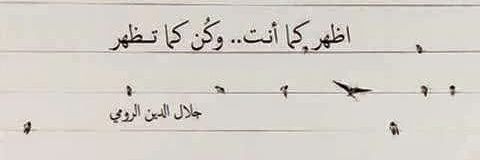 اظهر كما أنت.. وكُن كما تـظهر
جلال الدين الرومي